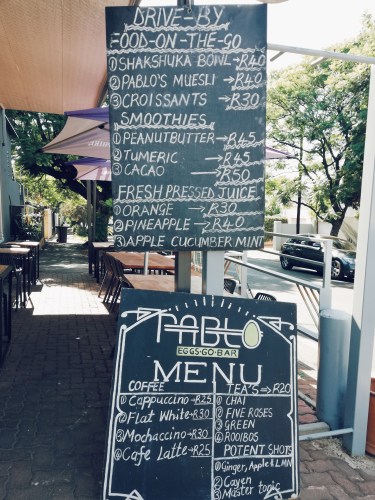 DRIVE-BY
FOOD-ON-THE-GO
① SHAKSHUKA BOWL → R40
② PABLO'S MUESLI → R40
③ CROISSANTS → R30
SMOOTHIES
① PEANUTBUTTER → R45
② TUMERIC → R45
③ CACAO → R50
FRESH PRESSED JUICE
① ORANGE → R30
② PINEAPPLE → R40
③ APPLE CUCUMBER MINT
PABLO
EGGS·GO·BAR
MENU
COFFEE
① Cappuccino → R25
② Flat White → R30
③ Mochaccino → R30
④ Cafe Latte → R25
TEA'S → R20
① CHAI
② FIVE ROSES
③ GREEN
④ ROOIBOS
POTENT SHOTS
① Ginger, Apple & LMN
② Cayen
③ Master tonic